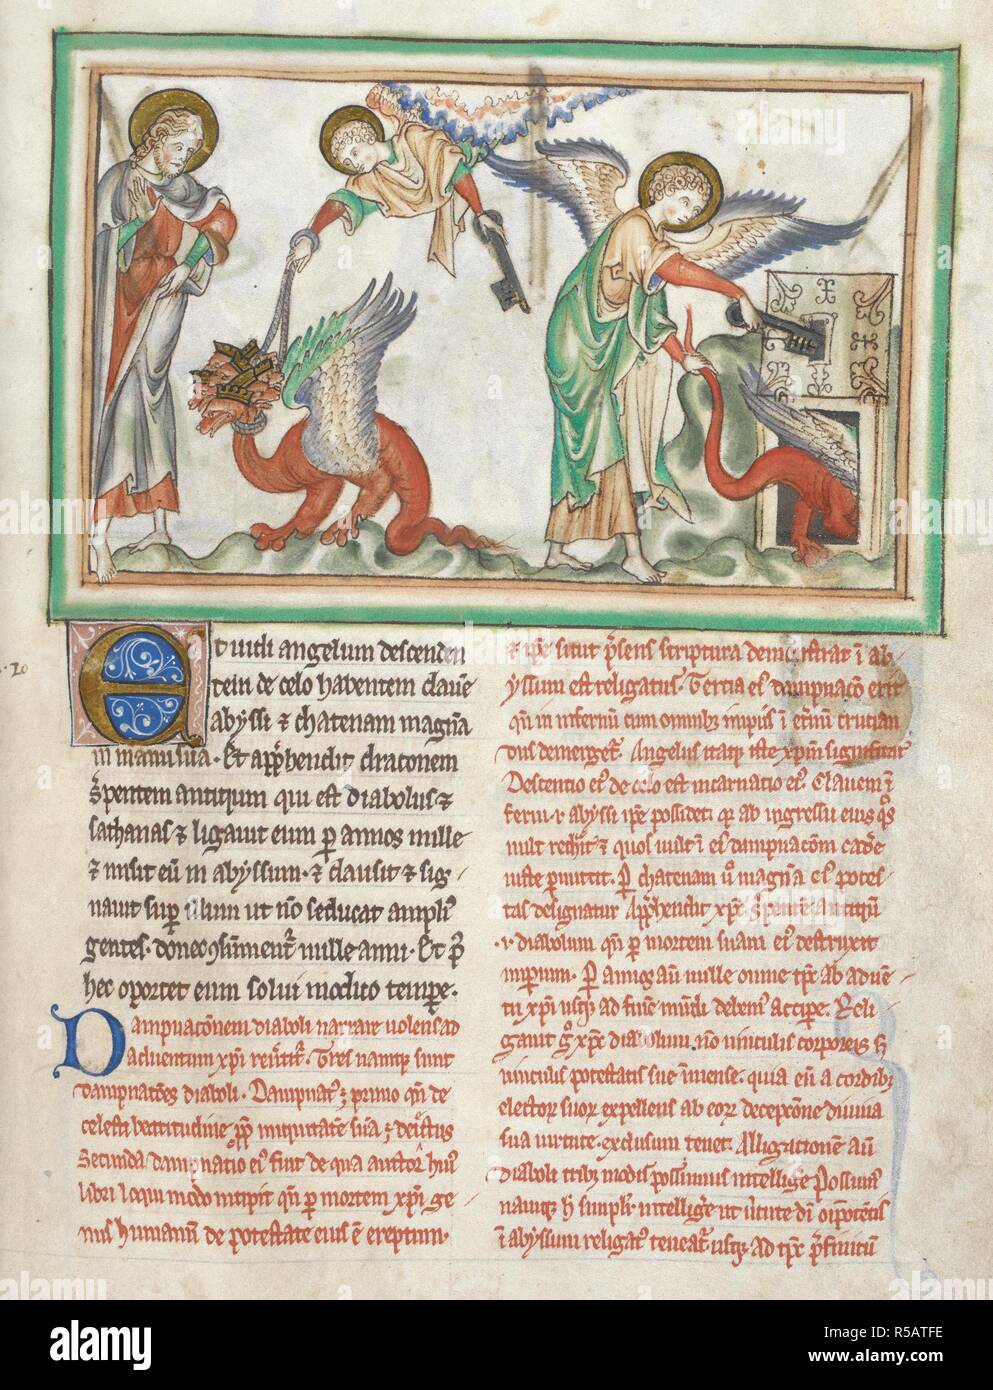 Et uidi angelum descenden
tem de celo habentem claue
abyssi ⁊ chatenam magna
in manu sua. Et appͪhendit draconem
serpentem antiqum qui est diabolus ⁊
sathanas ⁊ ligauit eum p annos mille
⁊ misit eu in abyssum. ⁊ clausit ⁊ sig
nauit sup illum ut no seducat ampli
gentes. donec ꝯsument mille anni. Et p
hec oportet eum solui modico tempe.
Dampnacionem diaboli narrare uolens ad
aduentum xpi reuertit. Tres namq sunt
dampnaciones diaboli. Dampnat primo qn de
celesti beatitudine pp iniquitate sua deiectus
Secunda dampnatio ei fuit de qua auctor hui
libri loqui modo incipit qn p mortem xpi ge
nus humanu de potestate eius e ereptum.
⁊ ipe sicut psens scriptura demonstrat i ab
yssum est religatus. Tertia ei dampnaco erit
qn in infernu cum omnib impiis i eternu crucian
dus demerget. Angelus itaq iste xpm significat
Descensio ei de celo est incarnatio ei. Clauem
inferni .i. abyssi ipe possidet. q ab ingressu eius qs
uult retrahit ⁊ quos uult i ei dampnacom cade
iuste pmittit. P chatenam u magna ei potes
tas designatur Apphendit xpc serpente antiqu
.i. diabolum qn p mortem suam ei destruxit
imperium. P annos au mille omne tps ab aduen
tu xpi usq ad fine mundi debem accipe. Reli
gauit g xpc diabolum. no uinculis corporeis s
uinculis potestatis sue inmense. quia eu a cordib
electorum suor expellens ab eor decepcone diuina
sua uirtute exclusum tenet. Alligationem au
diaboli trib modis possumus intellige Possum
namq h simplr intelligere ut uirtute di omipotentis
i abyssum religat teneat usq ad tps pfinitum
20
alamy
R5ATFE
www.alamy.com